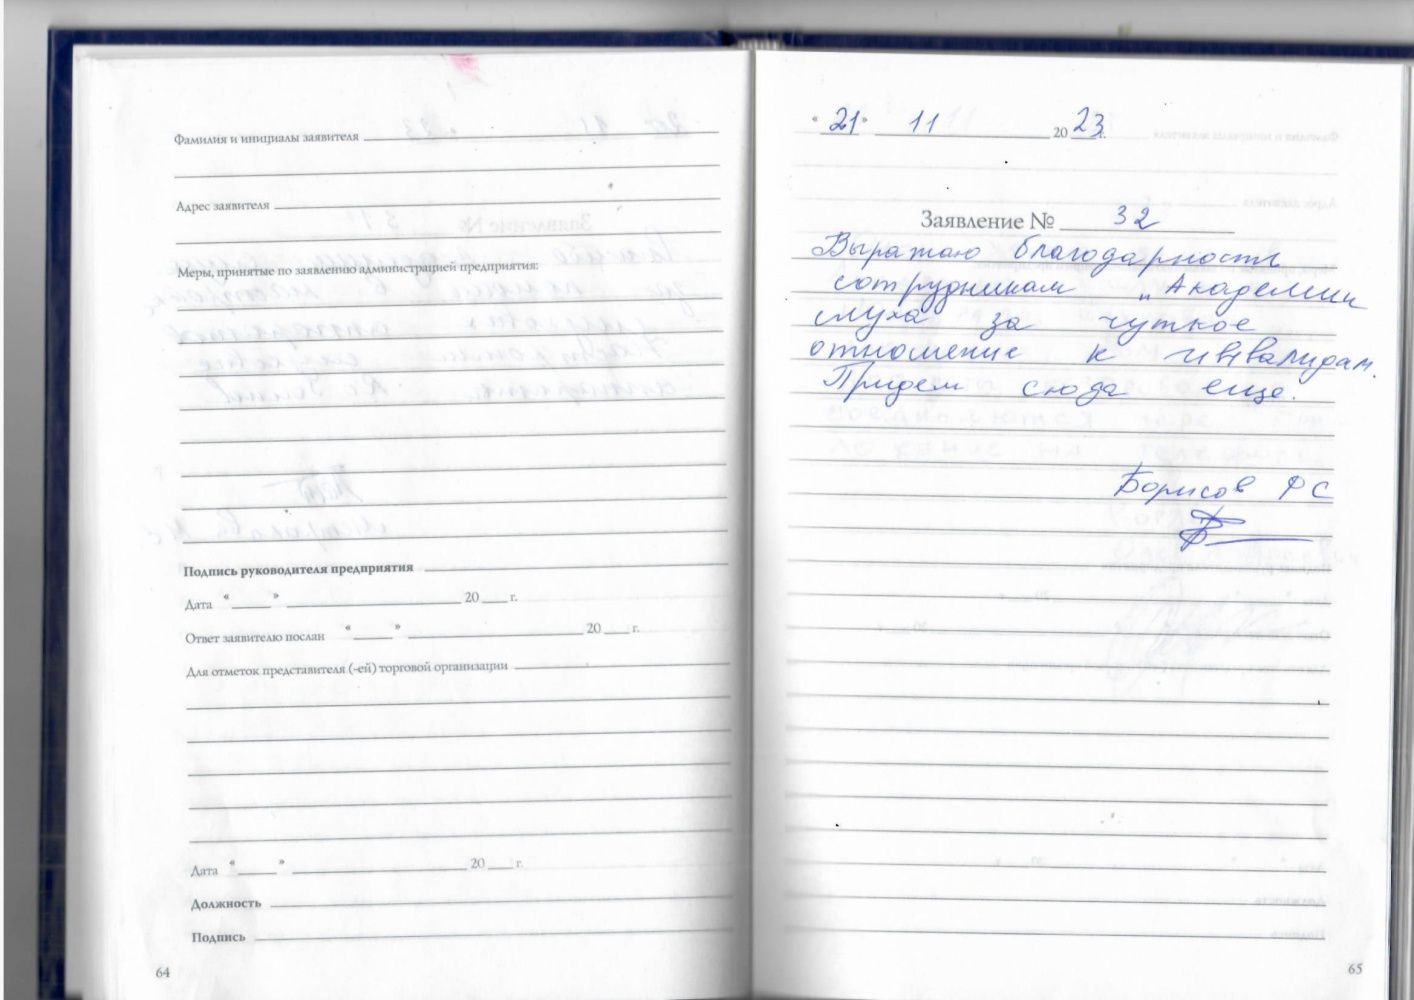 Фамилия и инициалы заявителя
Адрес заявителя
Меры, принятые по заявлению администрацией предприятия:
Подпись руководителя предприятия
Дата « » 20 г.
Ответ заявителю послан « » 20 г.
Для отметок представителя (-ей) торговой организации
Дата « » 20 г.
Должность
Подпись
64
"21" 11 2023 г.
Заявление № 32
Выражаю благодарность
сотрудникам „Академии
слуха за чуткое
отношение к инвалидам.
Придем сюда еще.
Борисов РС
65